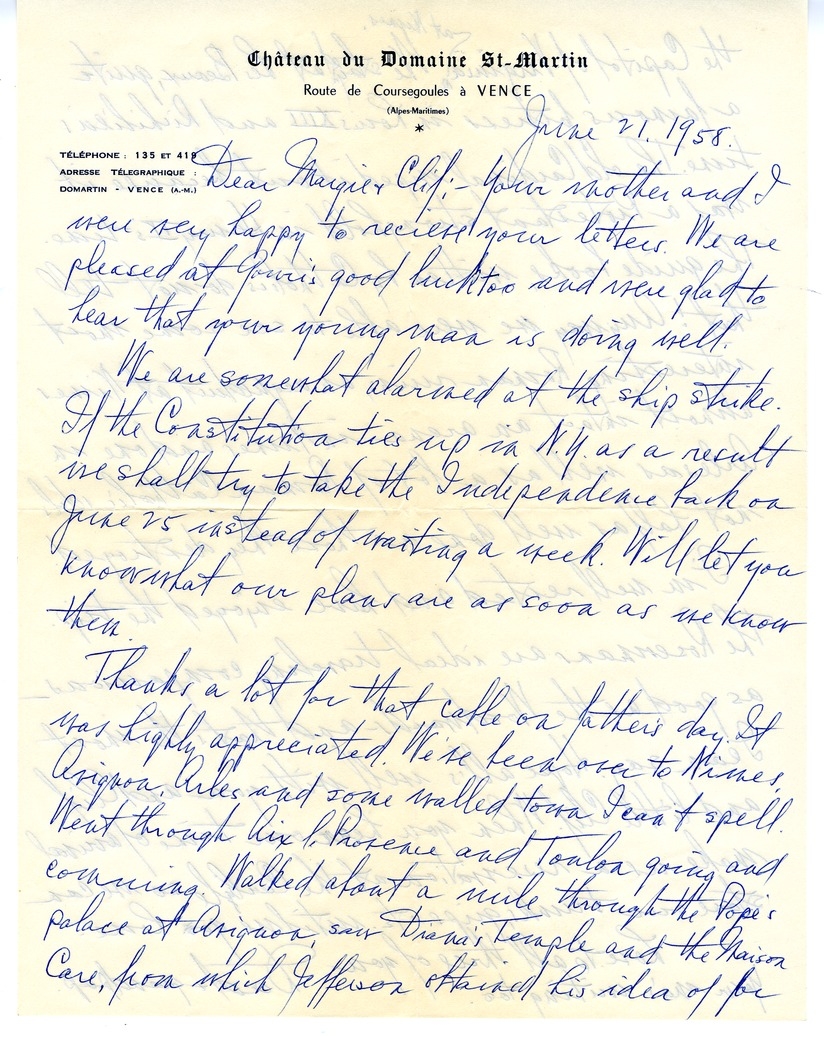 Château du Domaine St-Martin
Route de Coursegoules à VENCE
(Alpes-Maritimes)
*
June 21, 1958.
TÉLÉPHONE : 135 ET 419
ADRESSE TÉLEGRAPHIQUE :
DOMARTIN - VENCE (A.-M.)
Dear Margie & Clif:- Your mother and I
were very happy to recieve your letters. We are
pleased at Gowri's good luck too and were glad to
hear that your young man is doing well.
We are somewhat alarmed at the ship strike.
If the Constitution ties up in N.Y. as a result
we shall try to take the Independence back on
June 25 instead of waiting a week. Will let you
know what our plans are as soon as we know
them.
Thanks a lot for that cable on fathers day. It
was highly appreciated. We've been over to Nimes,
Avignon, Arles and some walled town I can't spell.
Went through Aix l. Provence and Toulon going and
comming. Walked about a mile through the Pope's
palace at Avignon, saw Diana's Temple and the Maison
Care, from which Jefferson obtained his idea of for